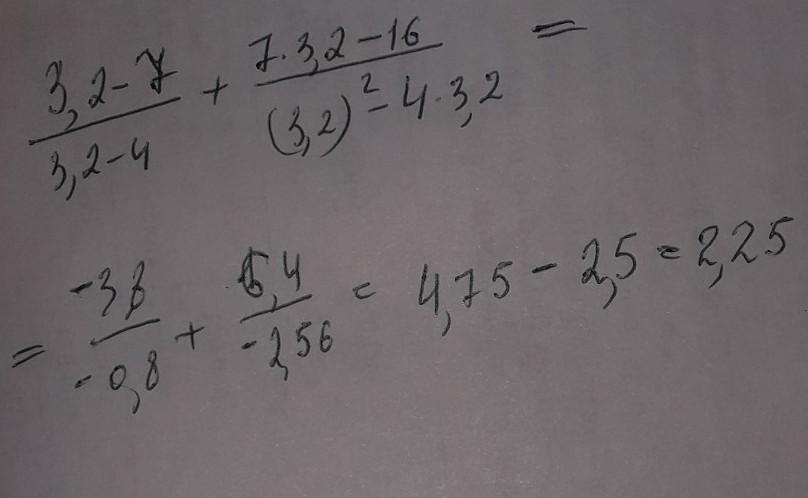 (3,2-7)/(3,2-4) + (7·3,2-16)/((3,2)²-4·3,2) =
= (-3,8)/(-0,8) + (6,4)/(-2,56) = 4,75 - 2,5 = 2,25